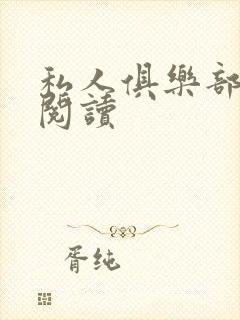 私人俱樂部
閱讀
胥纯